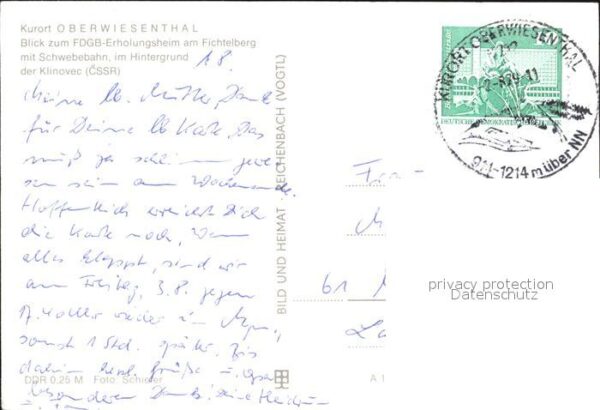 Kurort OBERWIESENTHAL
Blick zum FDGB-Erholungsheim am Fichtelberg
mit Schwebebahn, im Hintergrund
der Klinovec (ČSSR)
1.8.
Meine lb. Mutter, Dank
für Deine lb Karte, Das
muß ja schlimm gewe-
sen sein am Wochenende.
Hoffentlich erreicht Dich
die Karte noch, Wenn
alles klappt, sind wir
am Freitag, 3.8. gegen
wieder in
sonst 1 Std. später. Bis
dahin herzl. Grüße u.
besonderen Dank
DDR 0,25 M Foto: Schirer
BILD UND HEIMAT · REICHENBACH (VOGTL)
A 1
KURORT OBERWIESENTHAL
914-1214 m über NN
DEUTSCHE DEMOKRATISCHE
Frau
61
privacy protection
Datenschutz